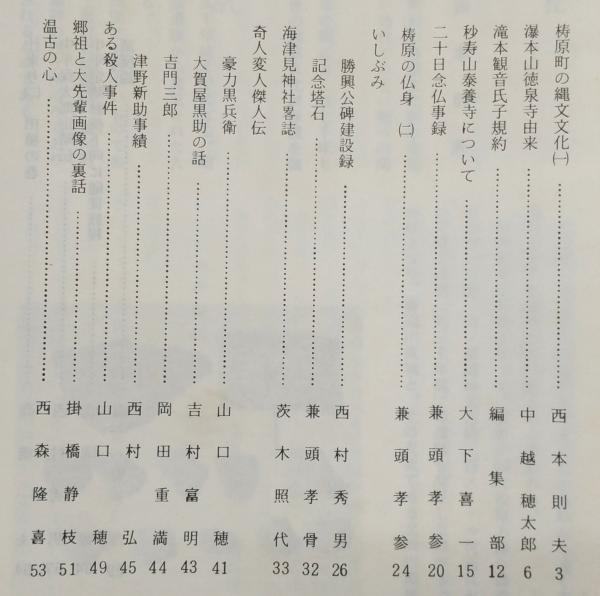 梼原町の縄文文化㈠……西本則夫 3
瀑本山徳泉寺由来……中越穂太郎 6
滝本観音氏子規約……編集部 12
秒寿山泰養寺について……大下喜一 15
二十日念仏事録……兼頭孝参 20
梼原の仏身 ㈡……兼頭孝参 24
いしぶみ
勝興公碑建設録……西村秀男 26
記念塔石……兼頭孝骨 32
海津見神社畧誌……茨木照代 33
奇人変人傑人伝
豪力黒兵衛……山口穂 41
大賀屋黒助の話……吉村富明 43
吉門三郎……岡田重満 44
津野新助事績……西村弘 45
ある殺人事件……山口穂 49
郷祖と大先輩画像の裏話……掛橋静枝 51
温古の心……西森隆喜 53